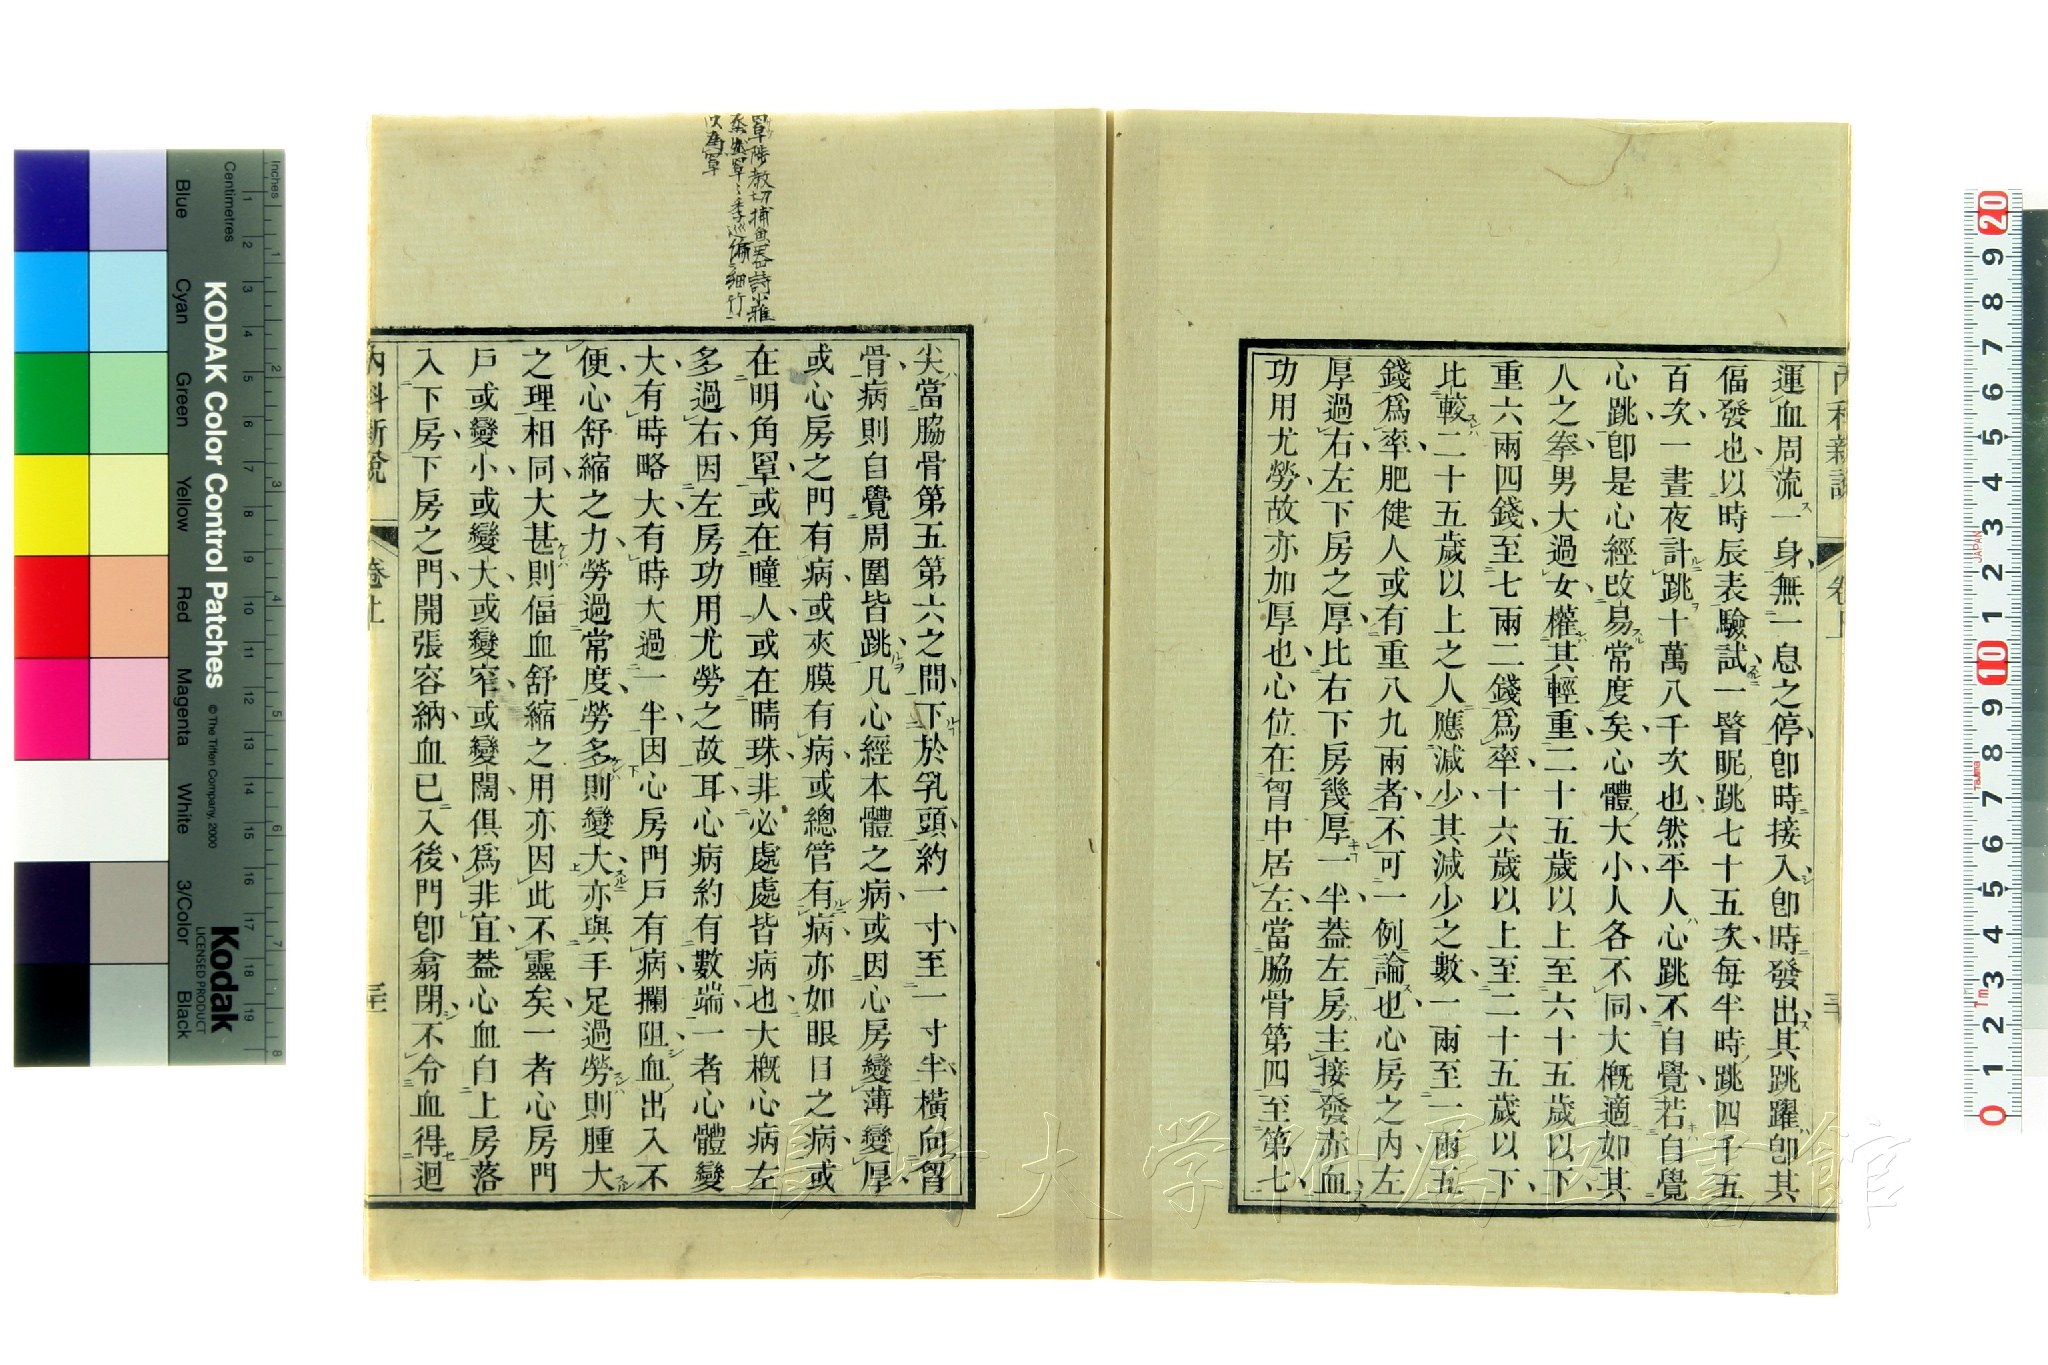 內科新說
卷上
運血周流一身無一息之停卽時接入卽時發出其跳躍卽其
偪發也以時辰表驗試一瞥眤跳七十五次每半時跳四千五
百次一晝夜計跳十萬八千次也然平人心跳不自覺若自覺
心跳卽是心經改易常度矣心體大小人各不同大槪適如其
人之拳男大過女權其輕重二十五歲以上至六十五歲以下
重六兩四錢至七兩二錢爲率十六歲以上至二十五歲以下
比較二十五歲以上之人應減少其減少之數一兩至一兩五
錢爲率肥健人或有重八九兩者不可一例論也心房之內左
厚過右左下房之厚比右下房幾厚一半葢左房主接發赤血
功用尤勞故亦加厚也心位在胷中居左當脇骨第四至第七
尖當脇骨第五第六之間下於乳頭約一寸至一寸半橫向胷
骨病則自覺周圍皆跳凡心經本體之病或因心房變薄變厚
或心房之門有病或夾膜有病或總管有病亦如眼目之病或
在明角罩或在瞳人或在睛珠非必處處皆病也大槪心病左
多過右因左房功用尤勞之故耳心病約有數端一者心體變
大有時略大有時大過一半因心房門戶有病攔阻血出入不
便心舒縮之力勞過常度勞多則變大亦與手足過勞則腫大
之理相同大甚則偪血舒縮之用亦因此不靈矣一者心房門
戶或變小或變大或變窄或變闊俱爲非宜葢心血自上房落
入下房下房之門開張容納血已入後門卽翕閉不令血得迴
內科新說
卷上
罩陟敎切捕魚器詩小雅
烝然罩〻季巡
細竹
以爲罩
KODAK Color Control Patches
© The Tiffen Company, 2000
Kodak
LICENSED PRODUCT
Inches
Centimetres
Blue
Cyan
Green
Yellow
Red
Magenta
White
3/Color
Black
JAPAN
Tajima
長崎大学附属図書館